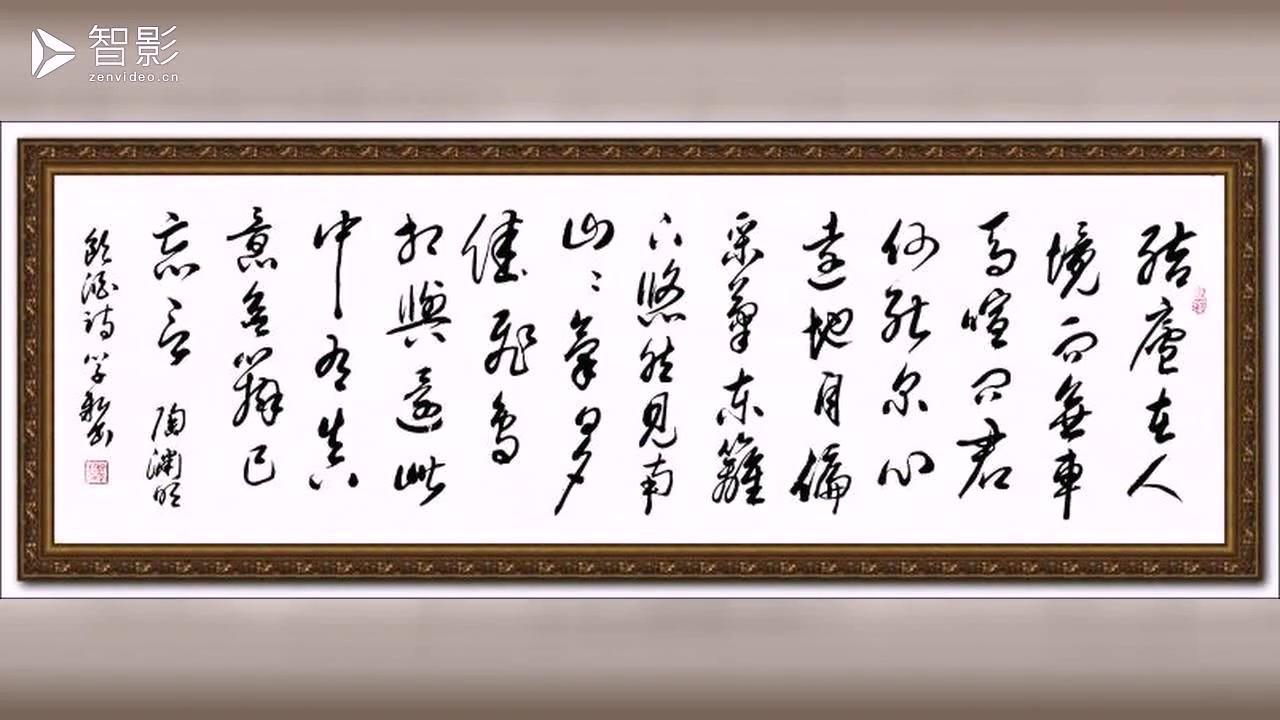 智影
zenvideo.cn
結廬在人
境而無車
馬喧問君
何能尔心
遠地自偏
采菊東籬
下悠然見南
山〻氣日夕
佳飛鳥
相與還此
中有真
意欲辯已
忘言 陶淵明
飲酒詩